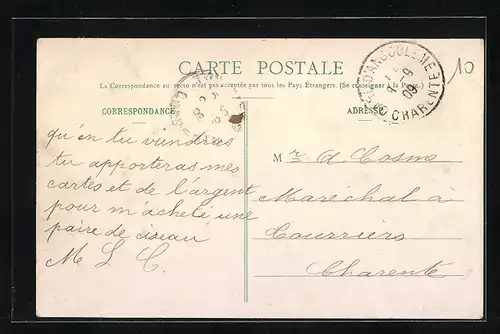 CARTE POSTALE
La Correspondance au recto n'est pas acceptée par tous les Pays Étrangers. (Se renseigner à la Poste)
CORRESPONDANCE
ADRESSE
10
D'ANGOULEME
CHARENTE
09
qu'en tu vundras
tu apporteras mes
cartes et de l'argent
pour m'acheté une
paire de ciseau
M L C.
Mr. A Cosme
Maréchal à
Courriers
Charente